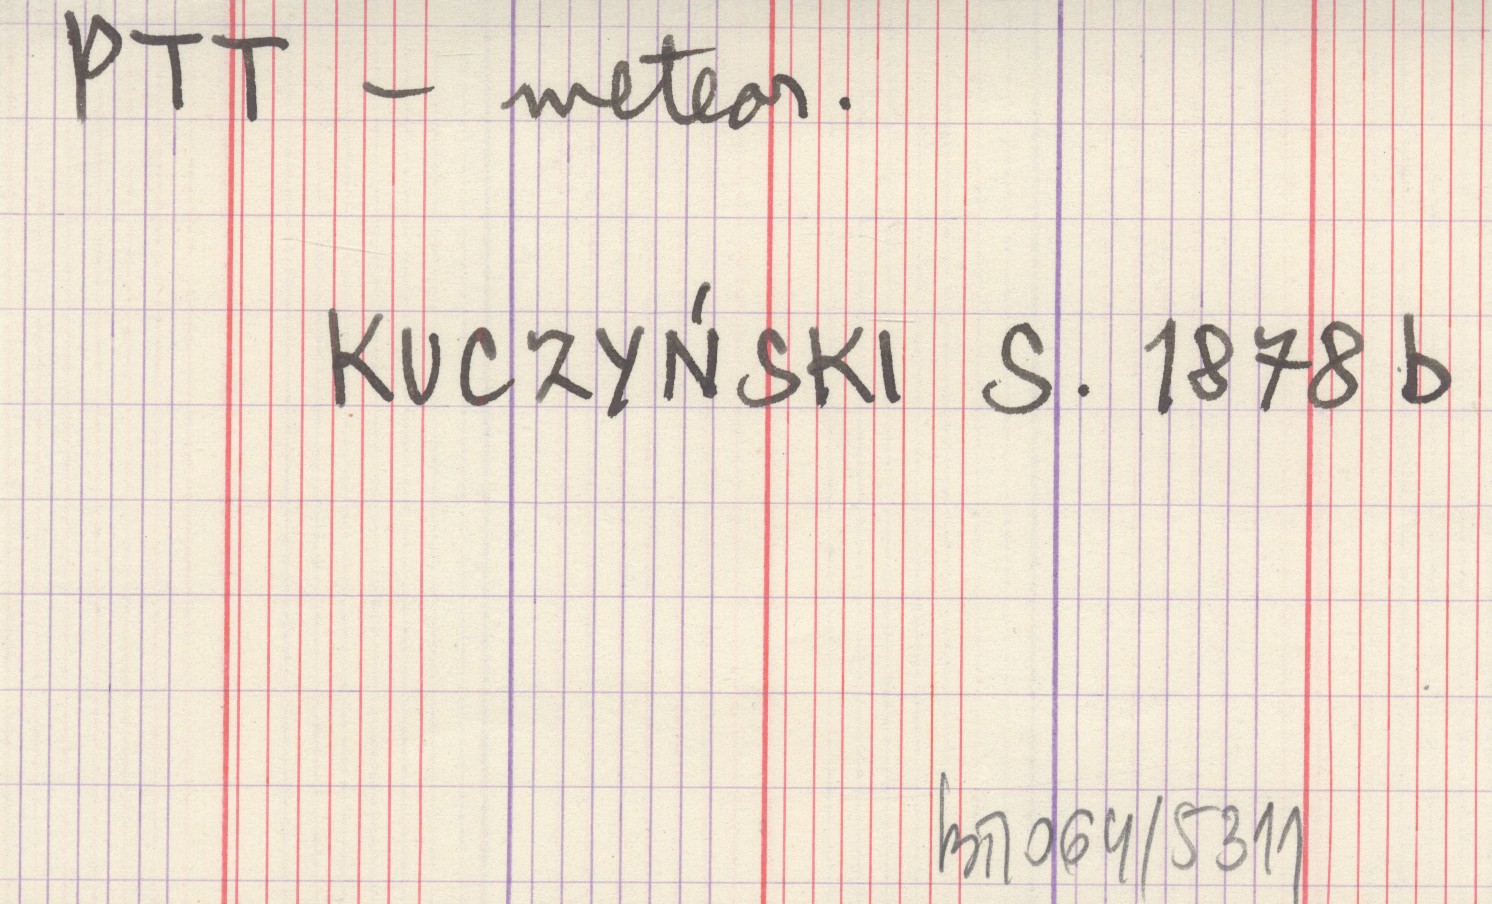 PTT – meteor.
KUCZYŃSKI S. 1878 b
064/5311